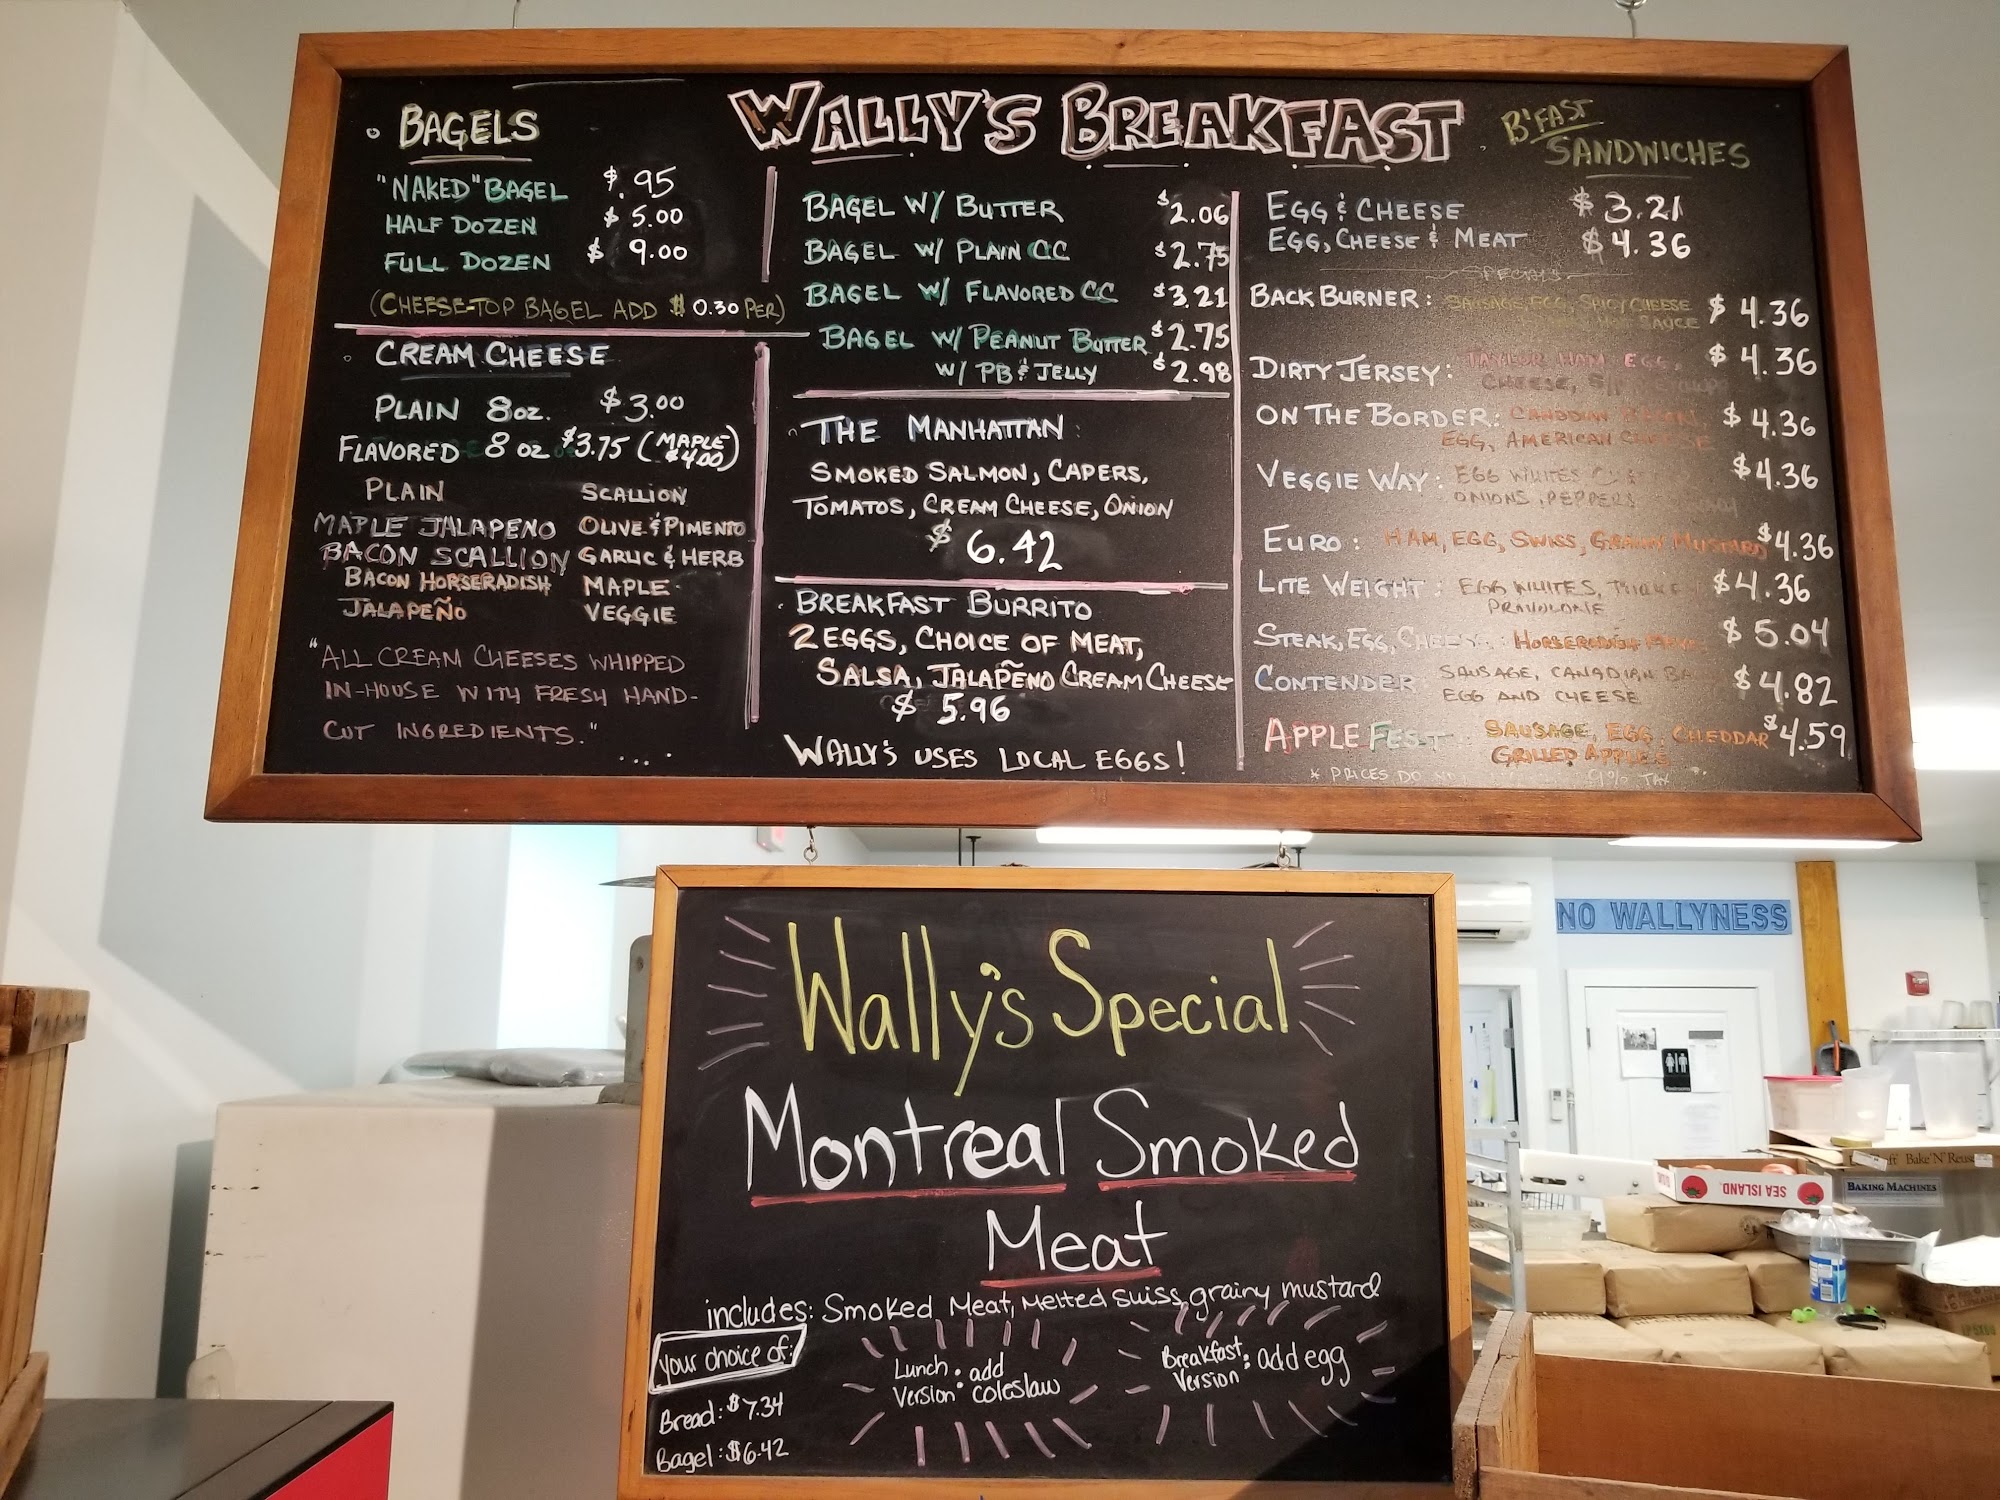 WALLY'S BREAKFAST
BAGELS
"NAKED" BAGEL $.95
HALF DOZEN $5.00
FULL DOZEN $9.00
(CHEESE-TOP BAGEL ADD $0.30 PER)
CREAM CHEESE
PLAIN 8oz. $3.00
FLAVORED 8 oz $3.75 (MAPLE $4.00)
PLAIN SCALLION
MAPLE JALAPENO OLIVE & PIMENTO
BACON SCALLION GARLIC & HERB
BACON HORSERADISH MAPLE
JALAPEÑO VEGGIE
"ALL CREAM CHEESES WHIPPED
IN-HOUSE WITH FRESH HAND-
CUT INGREDIENTS."
BAGEL W/ BUTTER $2.06
BAGEL W/ PLAIN CC $2.75
BAGEL W/ FLAVORED CC $3.21
BAGEL W/ PEANUT BUTTER $2.75
W/ PB & JELLY $2.98
THE MANHATTAN:
SMOKED SALMON, CAPERS,
TOMATOS, CREAM CHEESE, ONION
$6.42
BREAKFAST BURRITO
2 EGGS, CHOICE OF MEAT,
SALSA, JALAPEÑO CREAM CHEESE
$5.96
WALLY'S USES LOCAL EGGS!
B'FAST
SANDWICHES
EGG & CHEESE $3.21
EGG, CHEESE & MEAT $4.36
SPECIALS
BACK BURNER: SAUSAGE, EGG, SPICY CHEESE $4.36
SAUCE
DIRTY JERSEY: TAYLOR HAM, EGG, $4.36
CHEESE,
ON THE BORDER: CANADIAN BACON, $4.36
EGG, AMERICAN CHEESE
VEGGIE WAY: EGG WHITES $4.36
ONIONS, PEPPERS
EURO: HAM, EGG, SWISS, GRAINY MUSTARD $4.36
LITE WEIGHT: EGG WHITES, $4.36
PROVOLONE
STEAK, EGG, HORSERADISH $5.04
CONTENDER SAUSAGE, CANADIAN $4.82
EGG AND CHEESE
APPLE FEST: SAUSAGE, EGG, CHEDDAR $4.59
GRILLED APPLES
* PRICES DO 9% TAX
Wally's Special
Montreal Smoked
Meat
includes: Smoked Meat, Melted Swiss, grainy mustard
your choice of:
Bread: $7.34
Bagel: $6.42
Lunch Version: add coleslaw
Breakfast Version: add egg
NO WALLYNESS
Restrooms
Bake'N'Reuse
BAKING MACHINES
SEA ISLAND